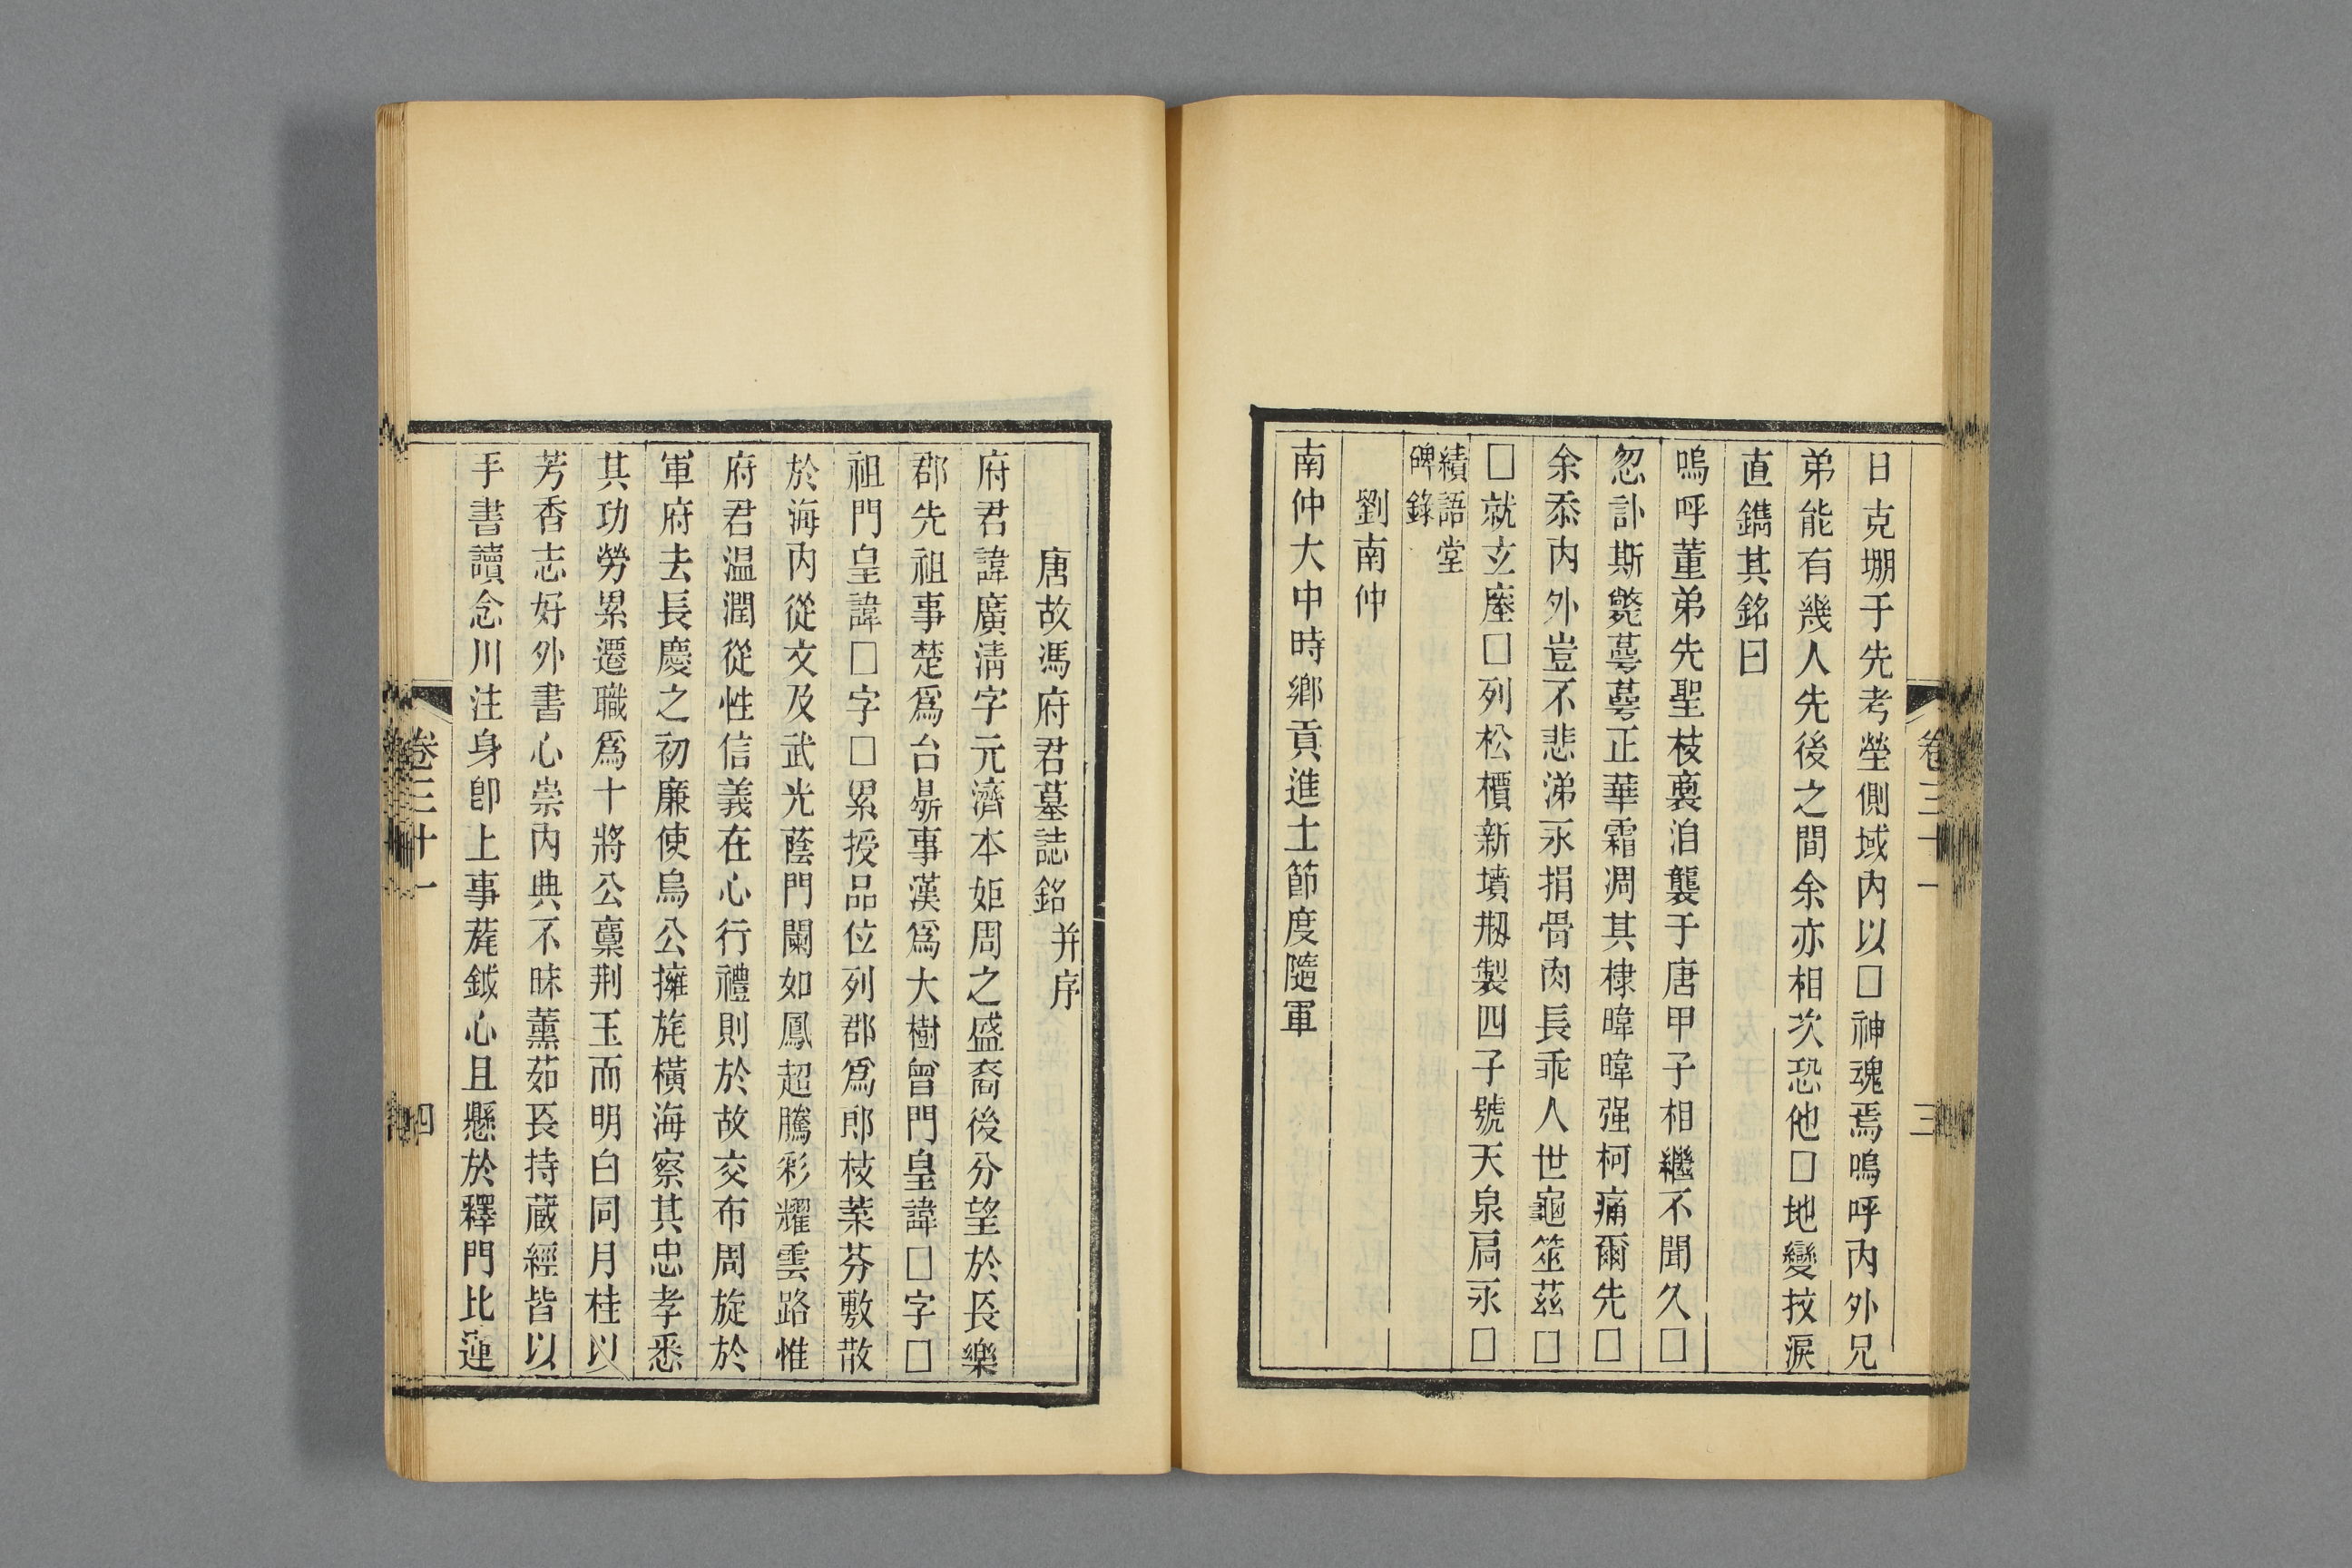 日克堋于先考塋側域内以□神魂焉嗚呼内外兄
弟能有幾人先後之間余亦相次恐他□地變抆淚
直鐫其銘曰
嗚呼董弟先聖枝裔洎襲于唐甲子相繼不聞久□
忽訃斯斃蕚蕚正華霜凋其棣暐暐强柯痛爾先□
余忝内外豈不悲涕永捐骨肉長乖人世龜筮茲□
□就玄壂□列松檟新墳刱製四子號天泉扃永□
績語堂
碑錄
劉南仲
南仲大中時鄉貢進士節度隨軍
卷三十一
三
唐故馮府君墓誌銘并序
府君諱廣淸字元濟本姬周之盛裔後分望於長樂
郡先祖事楚爲台鼎事漢爲大樹曾門皇諱□字□
祖門皇諱□字□累授品位列郡爲郎枝葉芬敷散
於海内從文及武光蔭門闌如鳳超騰彩耀雲路惟
府君温潤從性信義在心行禮則於故交布周旋於
軍府去長慶之初廉使烏公擁旄橫海察其忠孝悉
其功勞累遷職爲十將公稟荆玉而明白同月桂以
芳香志好外書心崇内典不昧薰茹長持藏經皆以
手書讀念川注身卽上事旄鉞心且懸於釋門比蓮
卷三十一
四